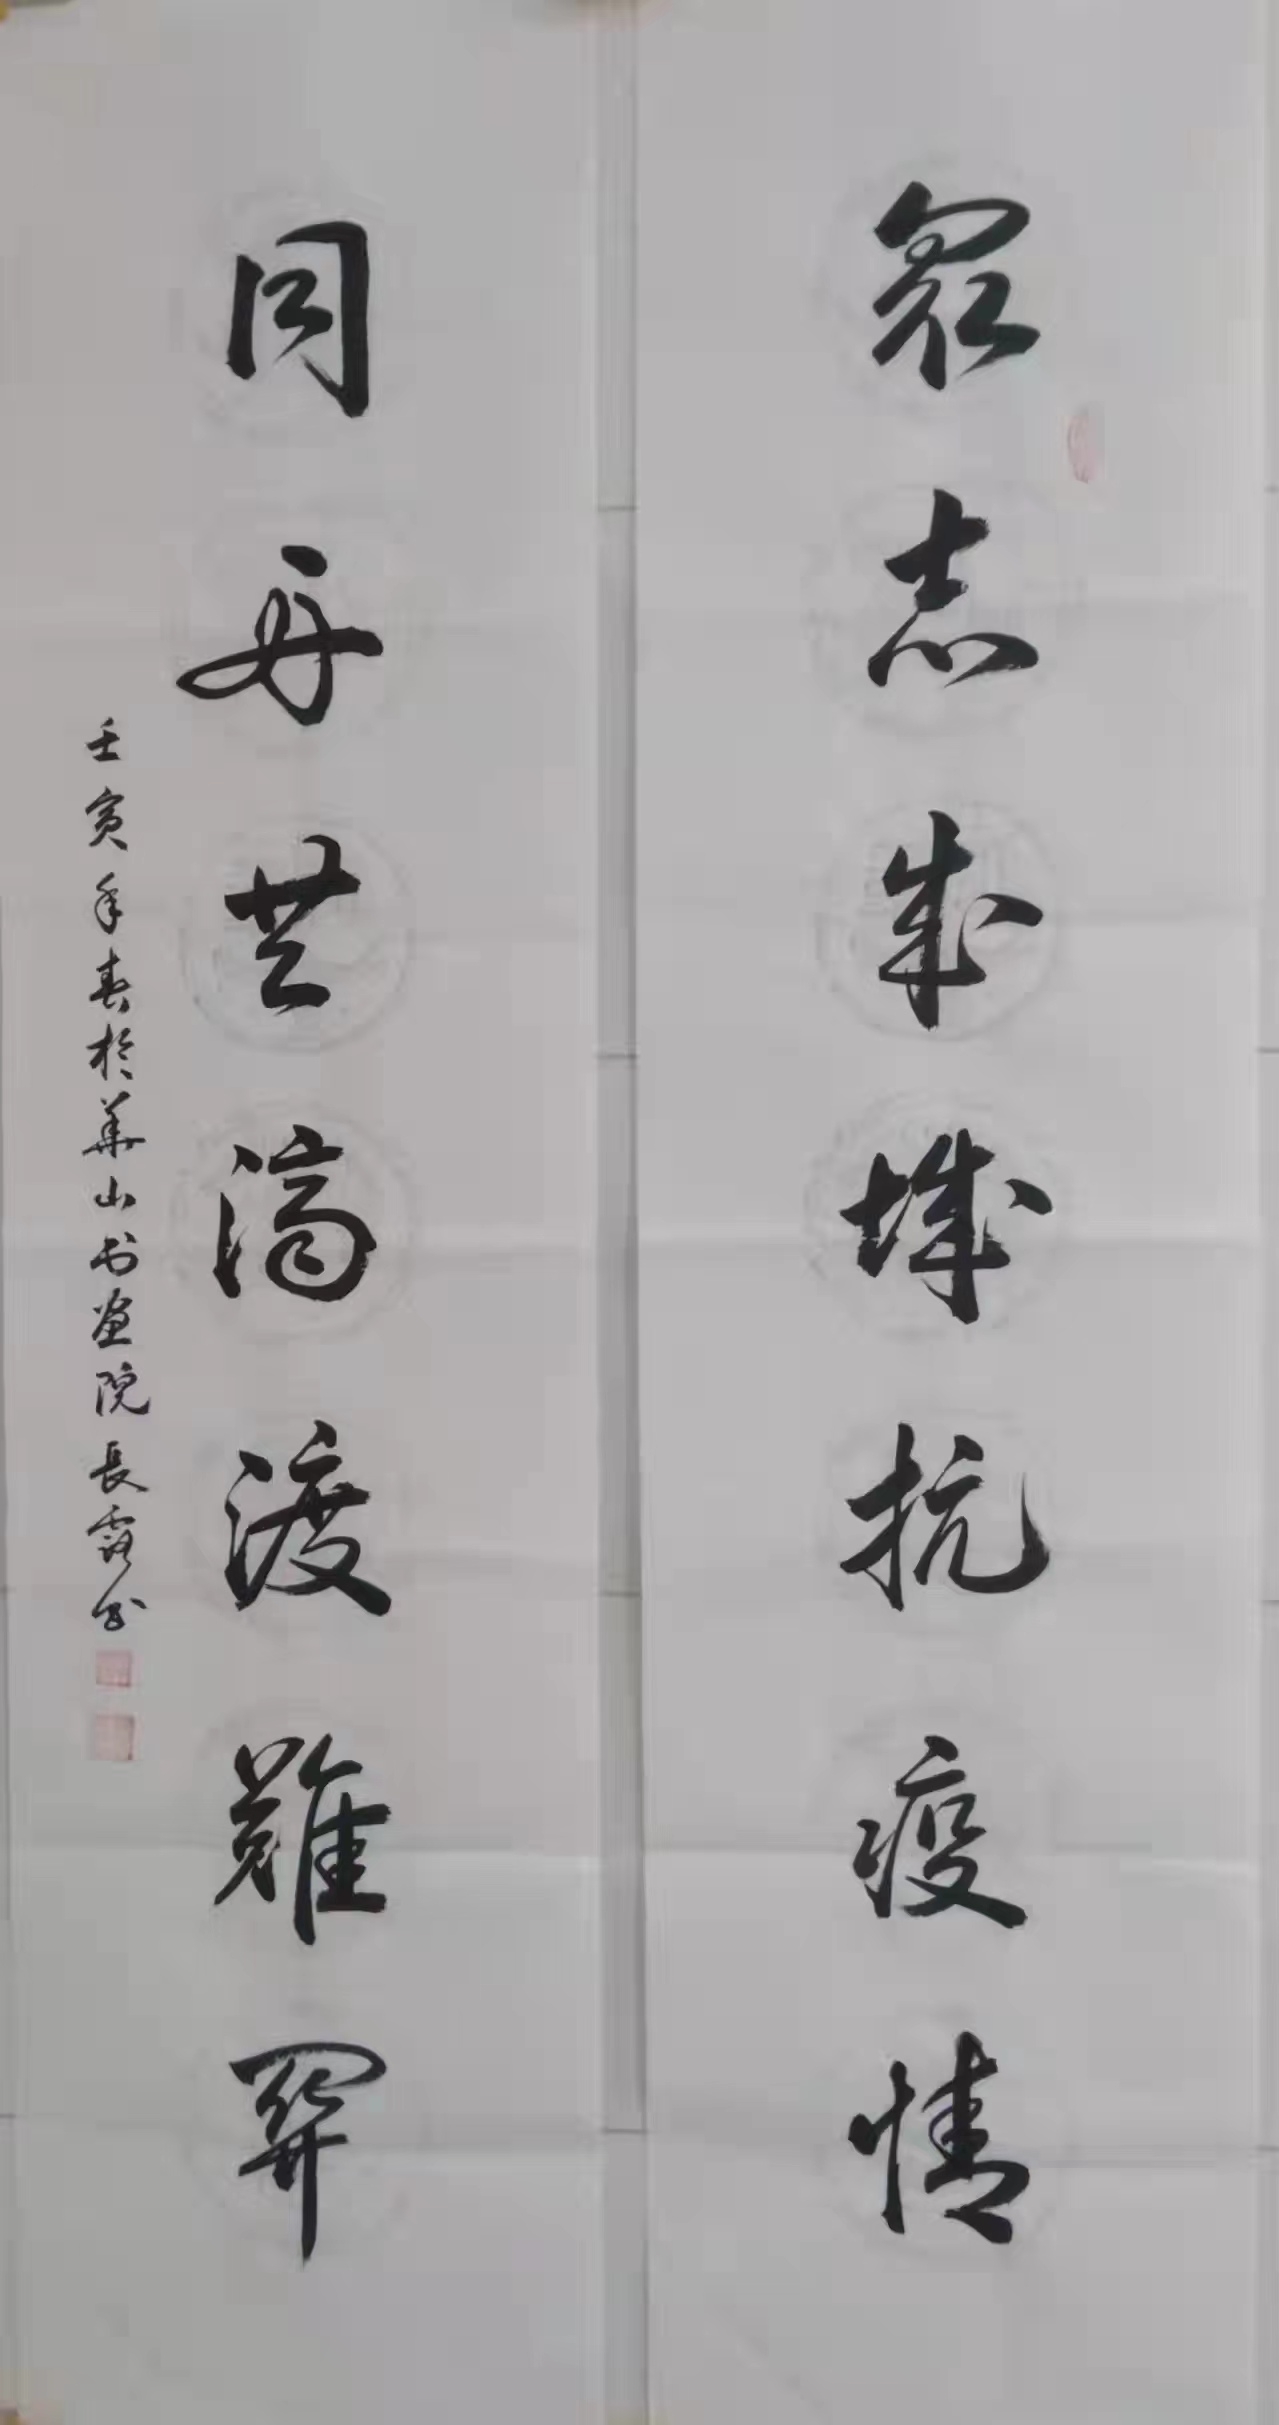 眾志成城抗疫情
同舟共濟渡難關
壬寅年春於華山书画院長霞书